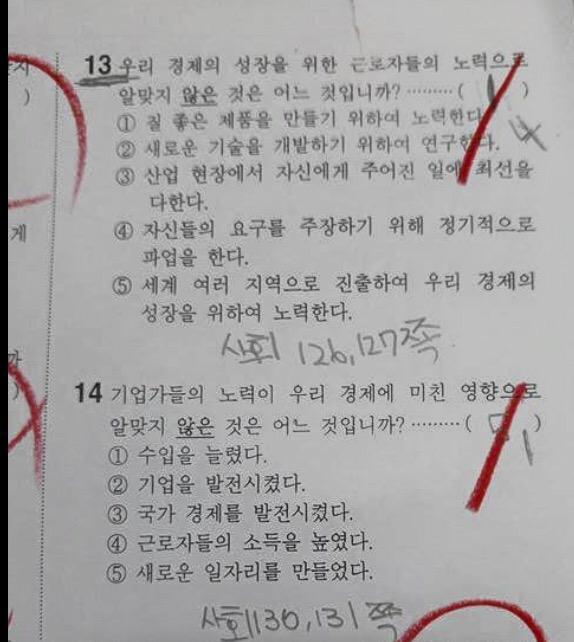 13 우리 경제의 성장을 위한 근로자들의 노력으로
알맞지 않은 것은 어느 것입니까? ⋯⋯⋯ ( 1 )
① 질 좋은 제품을 만들기 위하여 노력한다
4
② 새로운 기술을 개발하기 위하여 연구한다.
③ 산업 현장에서 자신에게 주어진 일에 최선을
다한다.
④ 자신들의 요구를 주장하기 위해 정기적으로
파업을 한다.
⑤ 세계 여러 지역으로 진출하여 우리 경제의
성장을 위하여 노력한다.
사회 126, 127쪽
14 기업가들의 노력이 우리 경제에 미친 영향으로
알맞지 않은 것은 어느 것입니까? ⋯⋯⋯ ( )
1
① 수입을 늘렸다.
② 기업을 발전시켰다.
③ 국가 경제를 발전시켰다.
④ 근로자들의 소득을 높였다.
⑤ 새로운 일자리를 만들었다.
사회 130, 131쪽
게